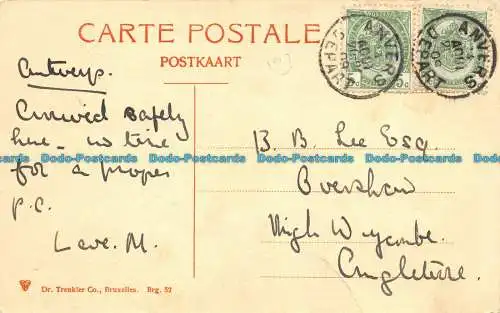 CARTE POSTALE
POSTKAART
Antwerp.
Arrived safely
here - no time
for a proper
p.c.
Love. M.
B. B. Lee Esq.
High Wycombe.
Angleterre.
ANVERS
DEPART
ANVERS
DEPART
Dodo-Postcards Dodo-Postcards Dodo-Postcards Dodo-Postcards Dodo-Postcards Dodo-Postcards
Dr. Trenkler Co., Bruxelles. Brg. 52